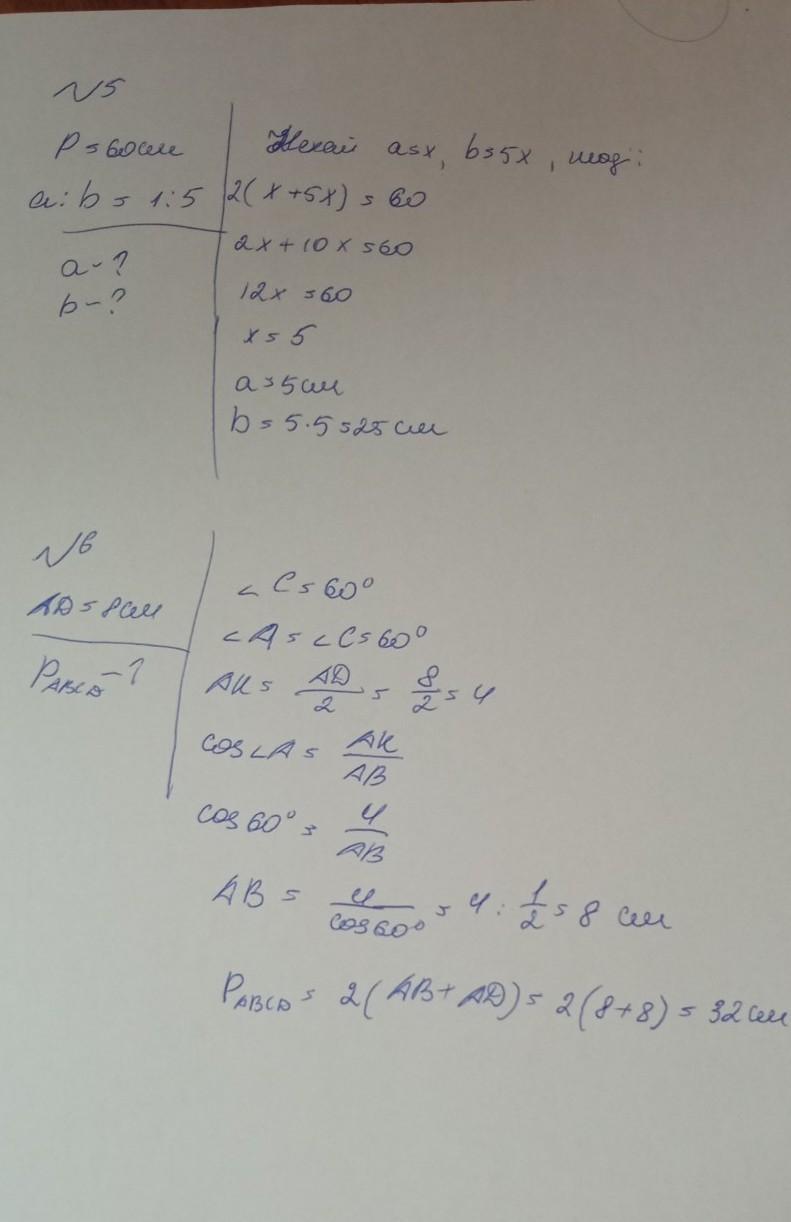 N5
P = 60см
a : b = 1 : 5
a - ?
b - ?
Нехай a=x, b=5x, тоді:
2(x+5x) = 60
2x+10x=60
12x=60
x=5
a=5см
b = 5·5=25см
N6
AD=8см
P_ABCD - ?
∠C=60°
∠A=∠C=60°
AK = AD/2 = 8/2 = 4
cos∠A = AK/AB
cos60° = 4/AB
AB = 4/cos60° = 4 : 1/2 = 8 см
P_ABCD = 2(AB+AD) = 2(8+8) = 32см